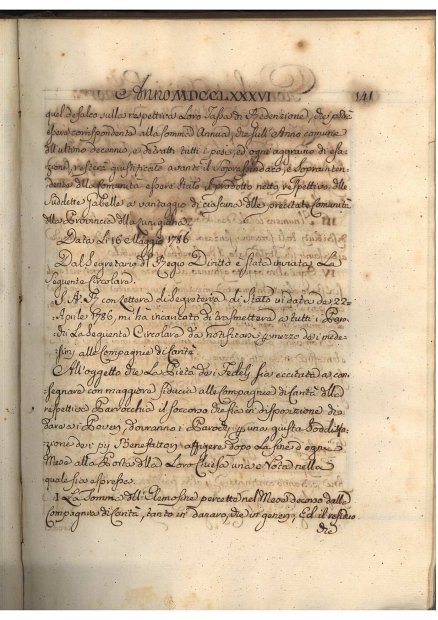 Anno MDCCLXXXVI 141
quel defalco sulla respettiva Loro Tassa di Redenzione, che sarà
essere corrispondente alla somma Annua, che sull'Anno comune
dell'ultimo decennio, e detratti tutti i pesi, ed ogni aggravio di esa
zione, resterà giustificato avanti il Soprassindaco, e Soprainten
denza alla Comunità essere stato il prodotto netto respettivo delle
Suddette Gabelle a vantaggio di ciascuna delle precitate Comunità
della Provincia della Lunigiana
Data Li 16 Maggio 1786
Dal Segretario di Regio Diritto è stata inviata La
Seguente Circolare.
S. A. R. con Lettera di Segreteria di Stato in data de 22
Aprile 1786, mi ha incaricato di trasmettere a tutti i
di La Seguente Circolare da notificarsi p mezzo de i mede
simi alle Compagnie di Carità
All'oggetto che La Pietà dei Fedeli sia eccitata a con
segnare con maggiore fiducia alle Compagnie di Carità delle
respettive Parrocchie il soccorso che sia in disposizione di
dare ai Poveri, dovranno i Parochi p una giusta Soddisfa
zione dei pij Benefattori affiggere dopo La fine d'ogni
Mese alla Porta della Loro Chiesa una Nota nella
quale sia espressa.
1. La Somma dell'Elemosine percette nel Mese decorso dalla
Compagnia di Carità, tanto in danaro, che in generi, Ed il residuo
che